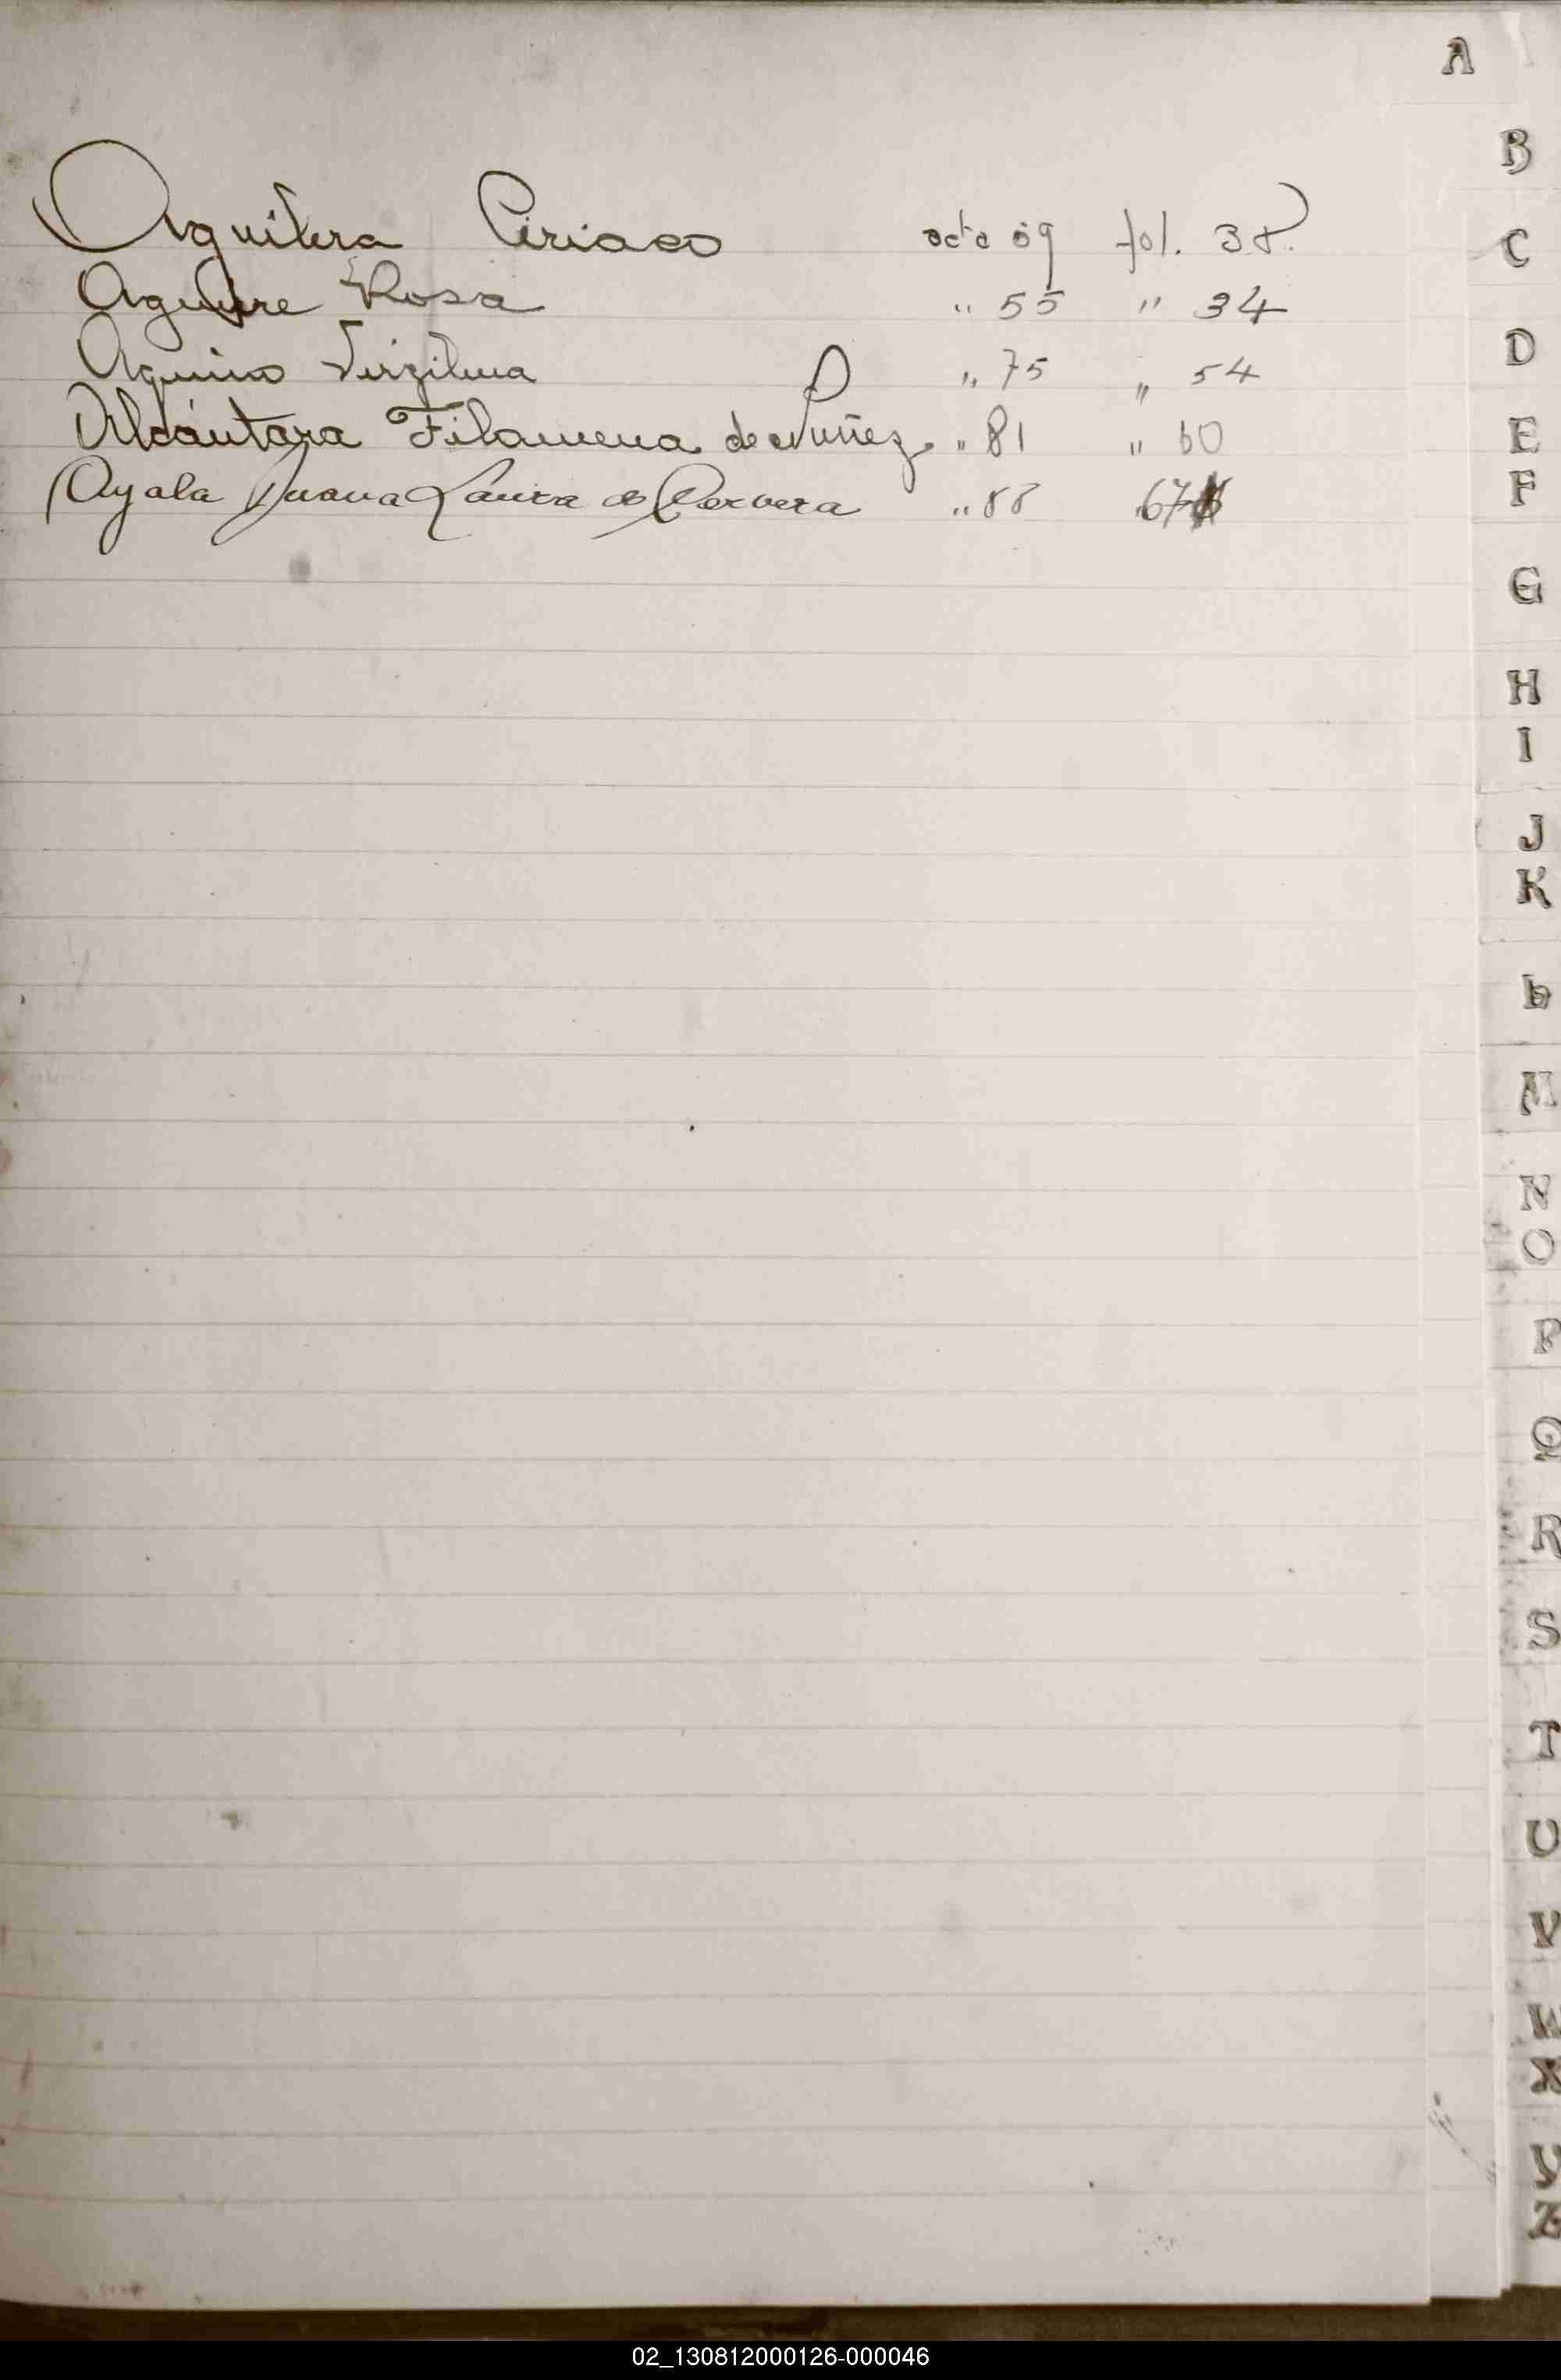 A
Aguilera Ciriaco acta 59 fol. 38.
Aguirre Rosa " 55 " 34
Aquino Virgilina " 75 " 54
Alcántara Filomena de Núñez " 81 " 60
Ayala Juana Laura de Cervera " 88 67
B
C
D
E
F
G
H
I
J
K
L
M
N
O
P
Q
R
S
T
U
V
W
X
Y
Z
02_130812000126-000046